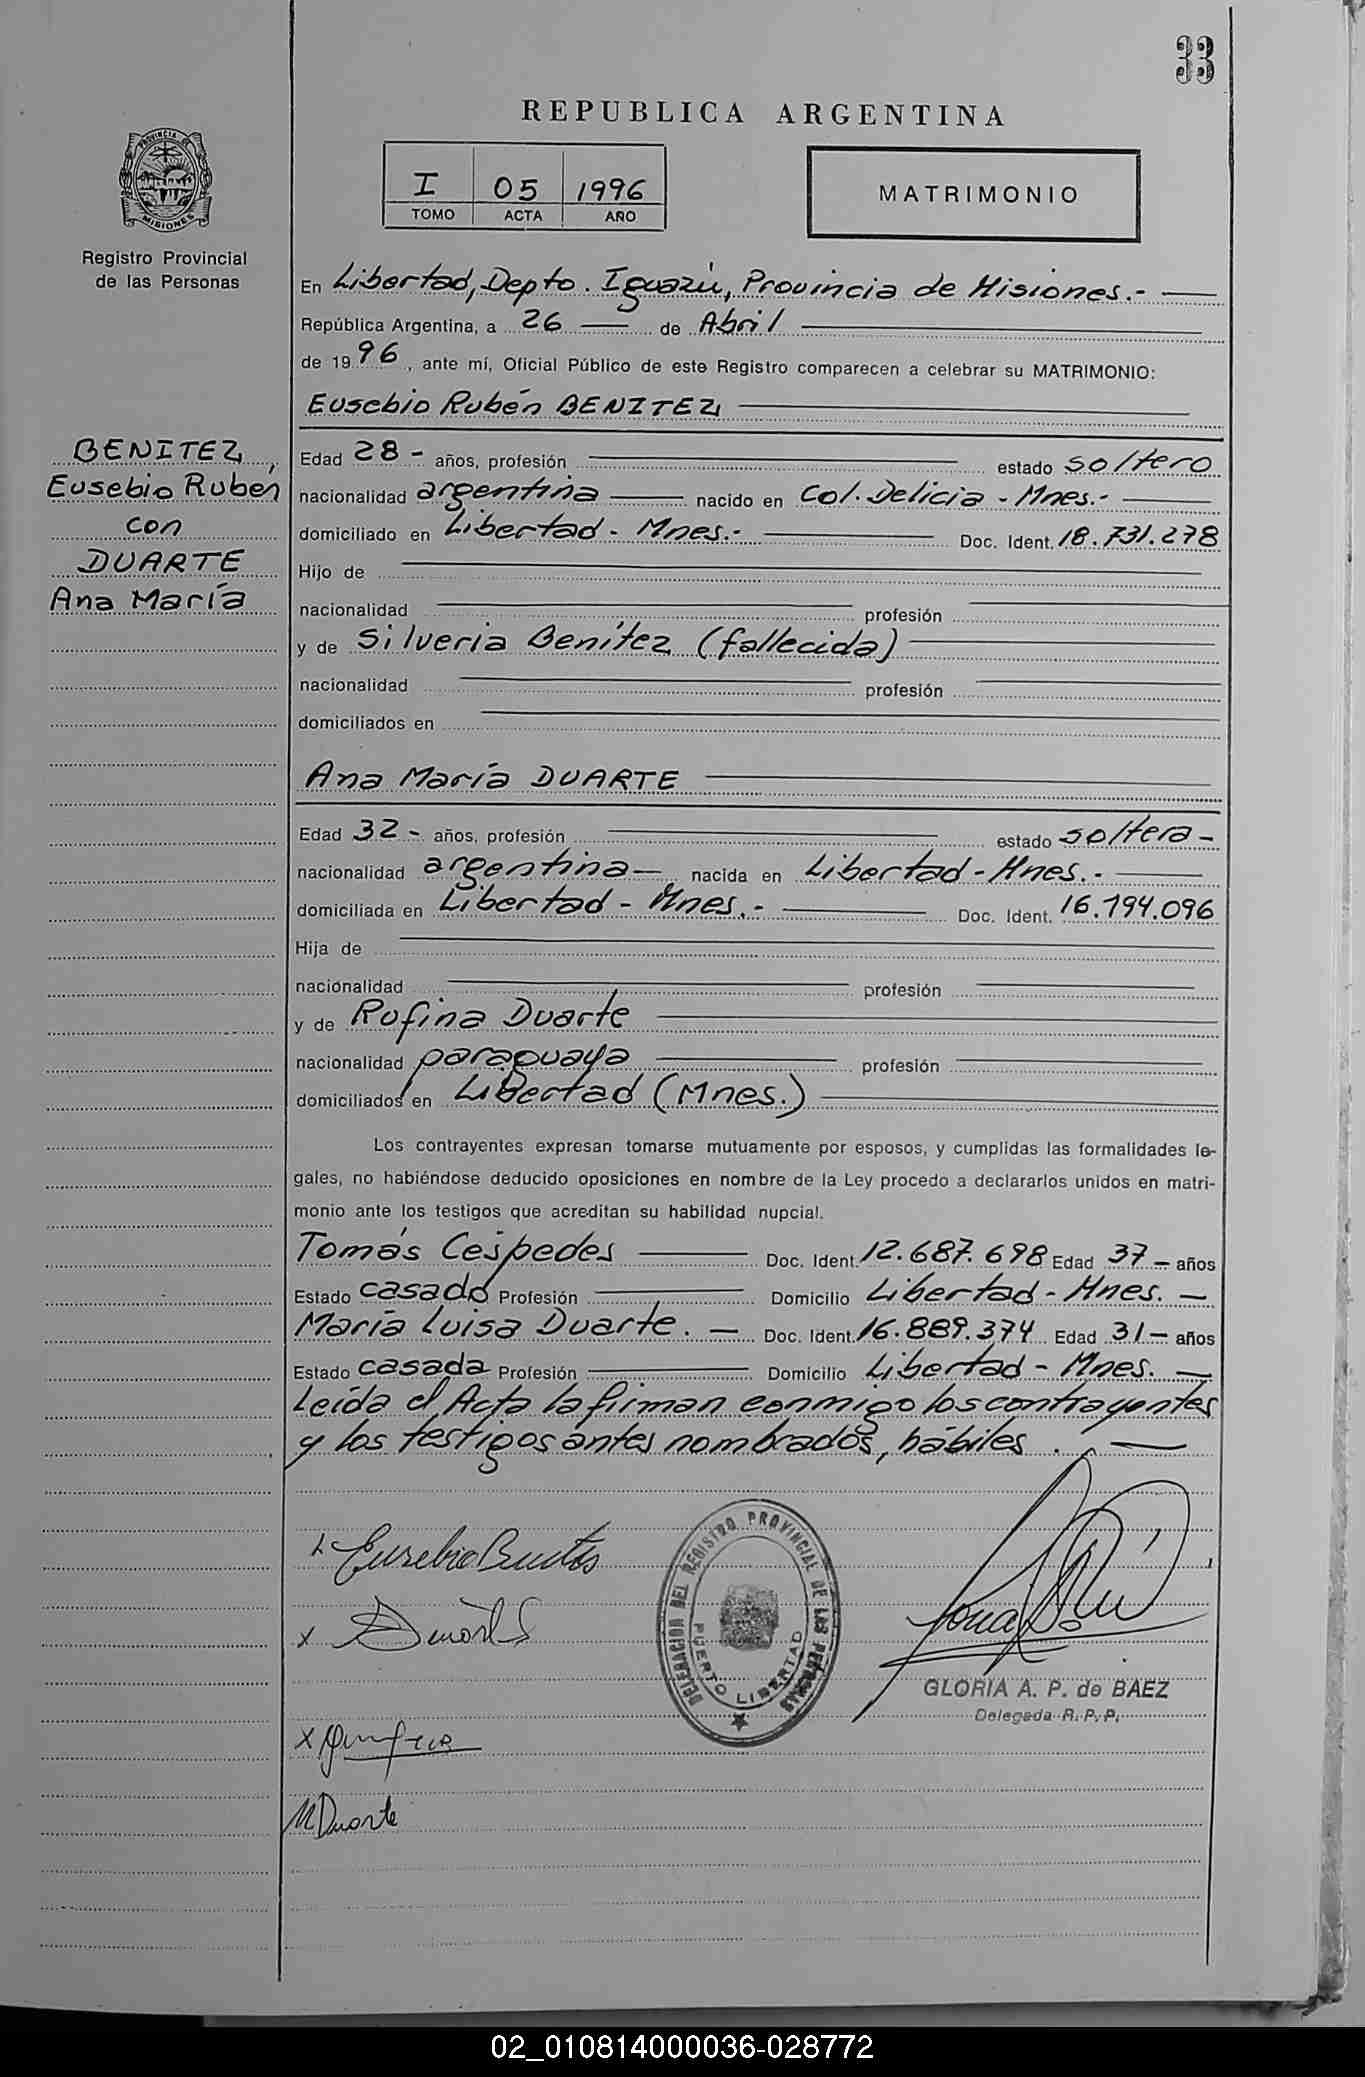 33
REPUBLICA ARGENTINA
PROVINCIA DE MISIONES
I 05 1996
TOMO ACTA AÑO
MATRIMONIO
Registro Provincial
de las Personas
En Libertad, Depto. Iguazú, Provincia de Misiones.-
República Argentina, a 26 de Abril
de 1996, ante mí, Oficial Público de este Registro comparecen a celebrar su MATRIMONIO:
Eusebio Rubén BENITEZ
BENITEZ,
Eusebio Ruben
con
DUARTE
Ana María
Edad 28 - años, profesión estado soltero
nacionalidad argentina nacido en Col. Delicia - Mnes.-
domiciliado en Libertad - Mnes.- Doc. Ident. 18.731.278
Hijo de
nacionalidad profesión
y de Silveria Benítez (fallecida)
nacionalidad profesión
domiciliados en
Ana María DUARTE
Edad 32 - años, profesión estado soltera -
nacionalidad argentina nacida en Libertad - Mnes.-
domiciliada en Libertad - Mnes.- Doc. Ident. 16.194.096
Hija de
nacionalidad profesión
y de Rufina Duarte
nacionalidad paraguaya profesión
domiciliados en Libertad (Mnes.)
Los contrayentes expresan tomarse mutuamente por esposos, y cumplidas las formalidades le-
gales, no habiéndose deducido oposiciones en nombre de la Ley procedo a declararlos unidos en matri-
monio ante los testigos que acreditan su habilidad nupcial.
Tomás Céspedes Doc. Ident. 12.687.698 Edad 37 - años
Estado casado Profesión Domicilio Libertad - Mnes. -
María Luisa Duarte. - Doc. Ident. 16.889.374 Edad 31 - años
Estado casada Profesión Domicilio Libertad - Mnes. -
Leída el Acta la firman conmigo los contrayentes
y los testigos antes nombrados, hábiles.
x Eusebio
x Duarte
x
M Duarte
DELEGACION DEL REGISTRO PROVINCIAL DE LAS PERSONAS
PUERTO LIBERTAD
GLORIA A. P. de BAEZ
Delegada R. P. P.
02_010814000036-028772